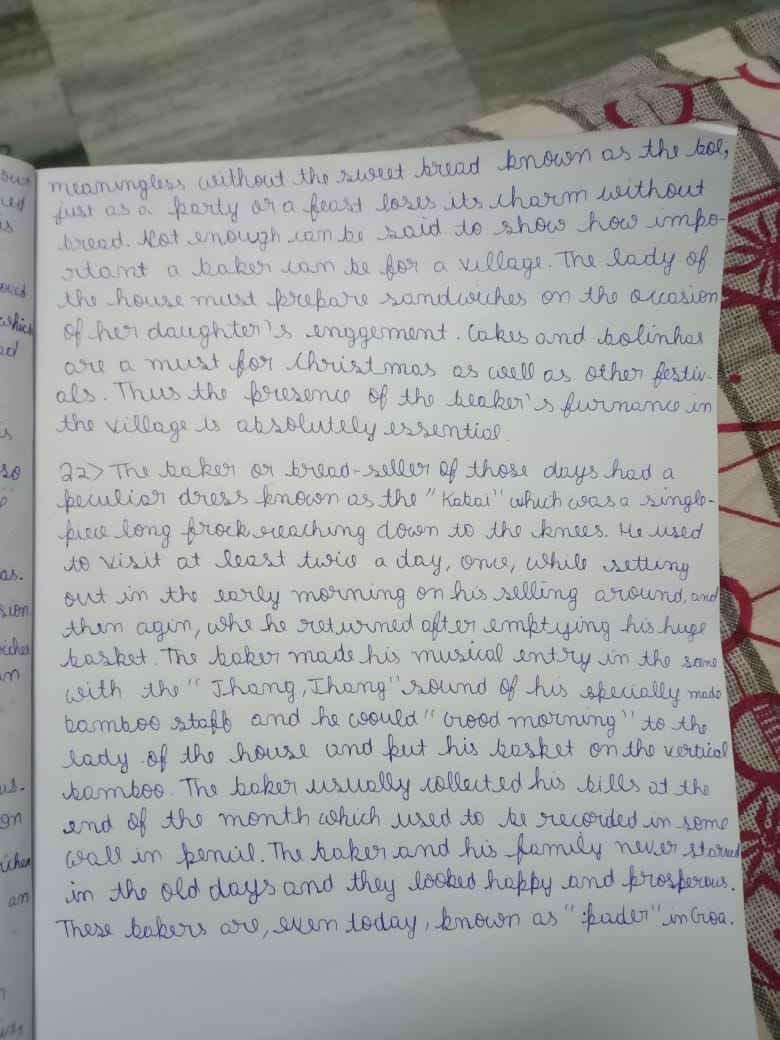 meaningless without the sweet bread known as the bol,
just as a party or a feast loses its charm without
bread. Not enough can be said to show how impo-
rtant a baker can be for a village. The lady of
the house must prepare sandwiches on the occasion
of her daughter's enggement. Cakes and bolinhas
are a must for Christmas as well as other festiv-
als. Thus the presence of the beaker's furnance in
the village is absolutely essential.
22> The baker or bread-seller of those days had a
peculiar dress known as the "Kabai" which was a single-
piece long frock reaching down to the knees. He used
to visit at least twice a day, once, while setting
out in the early morning on his selling around, and
then agin, whe he returned after emptying his huge
basket. The baker made his musical entry in the scene
with the "Jhang, Jhang" sound of his specially made
bamboo staff and he coould "Good morning" to the
lady of the house and put his basket on the vertical
bamboo. The baker usually collected his bills at the
end of the month which used to be recorded in some
wall in pencil. The baker and his family never starved
in the old days and they looked happy and prosperous.
These bakers are, even today, known as "pader" in Goa.